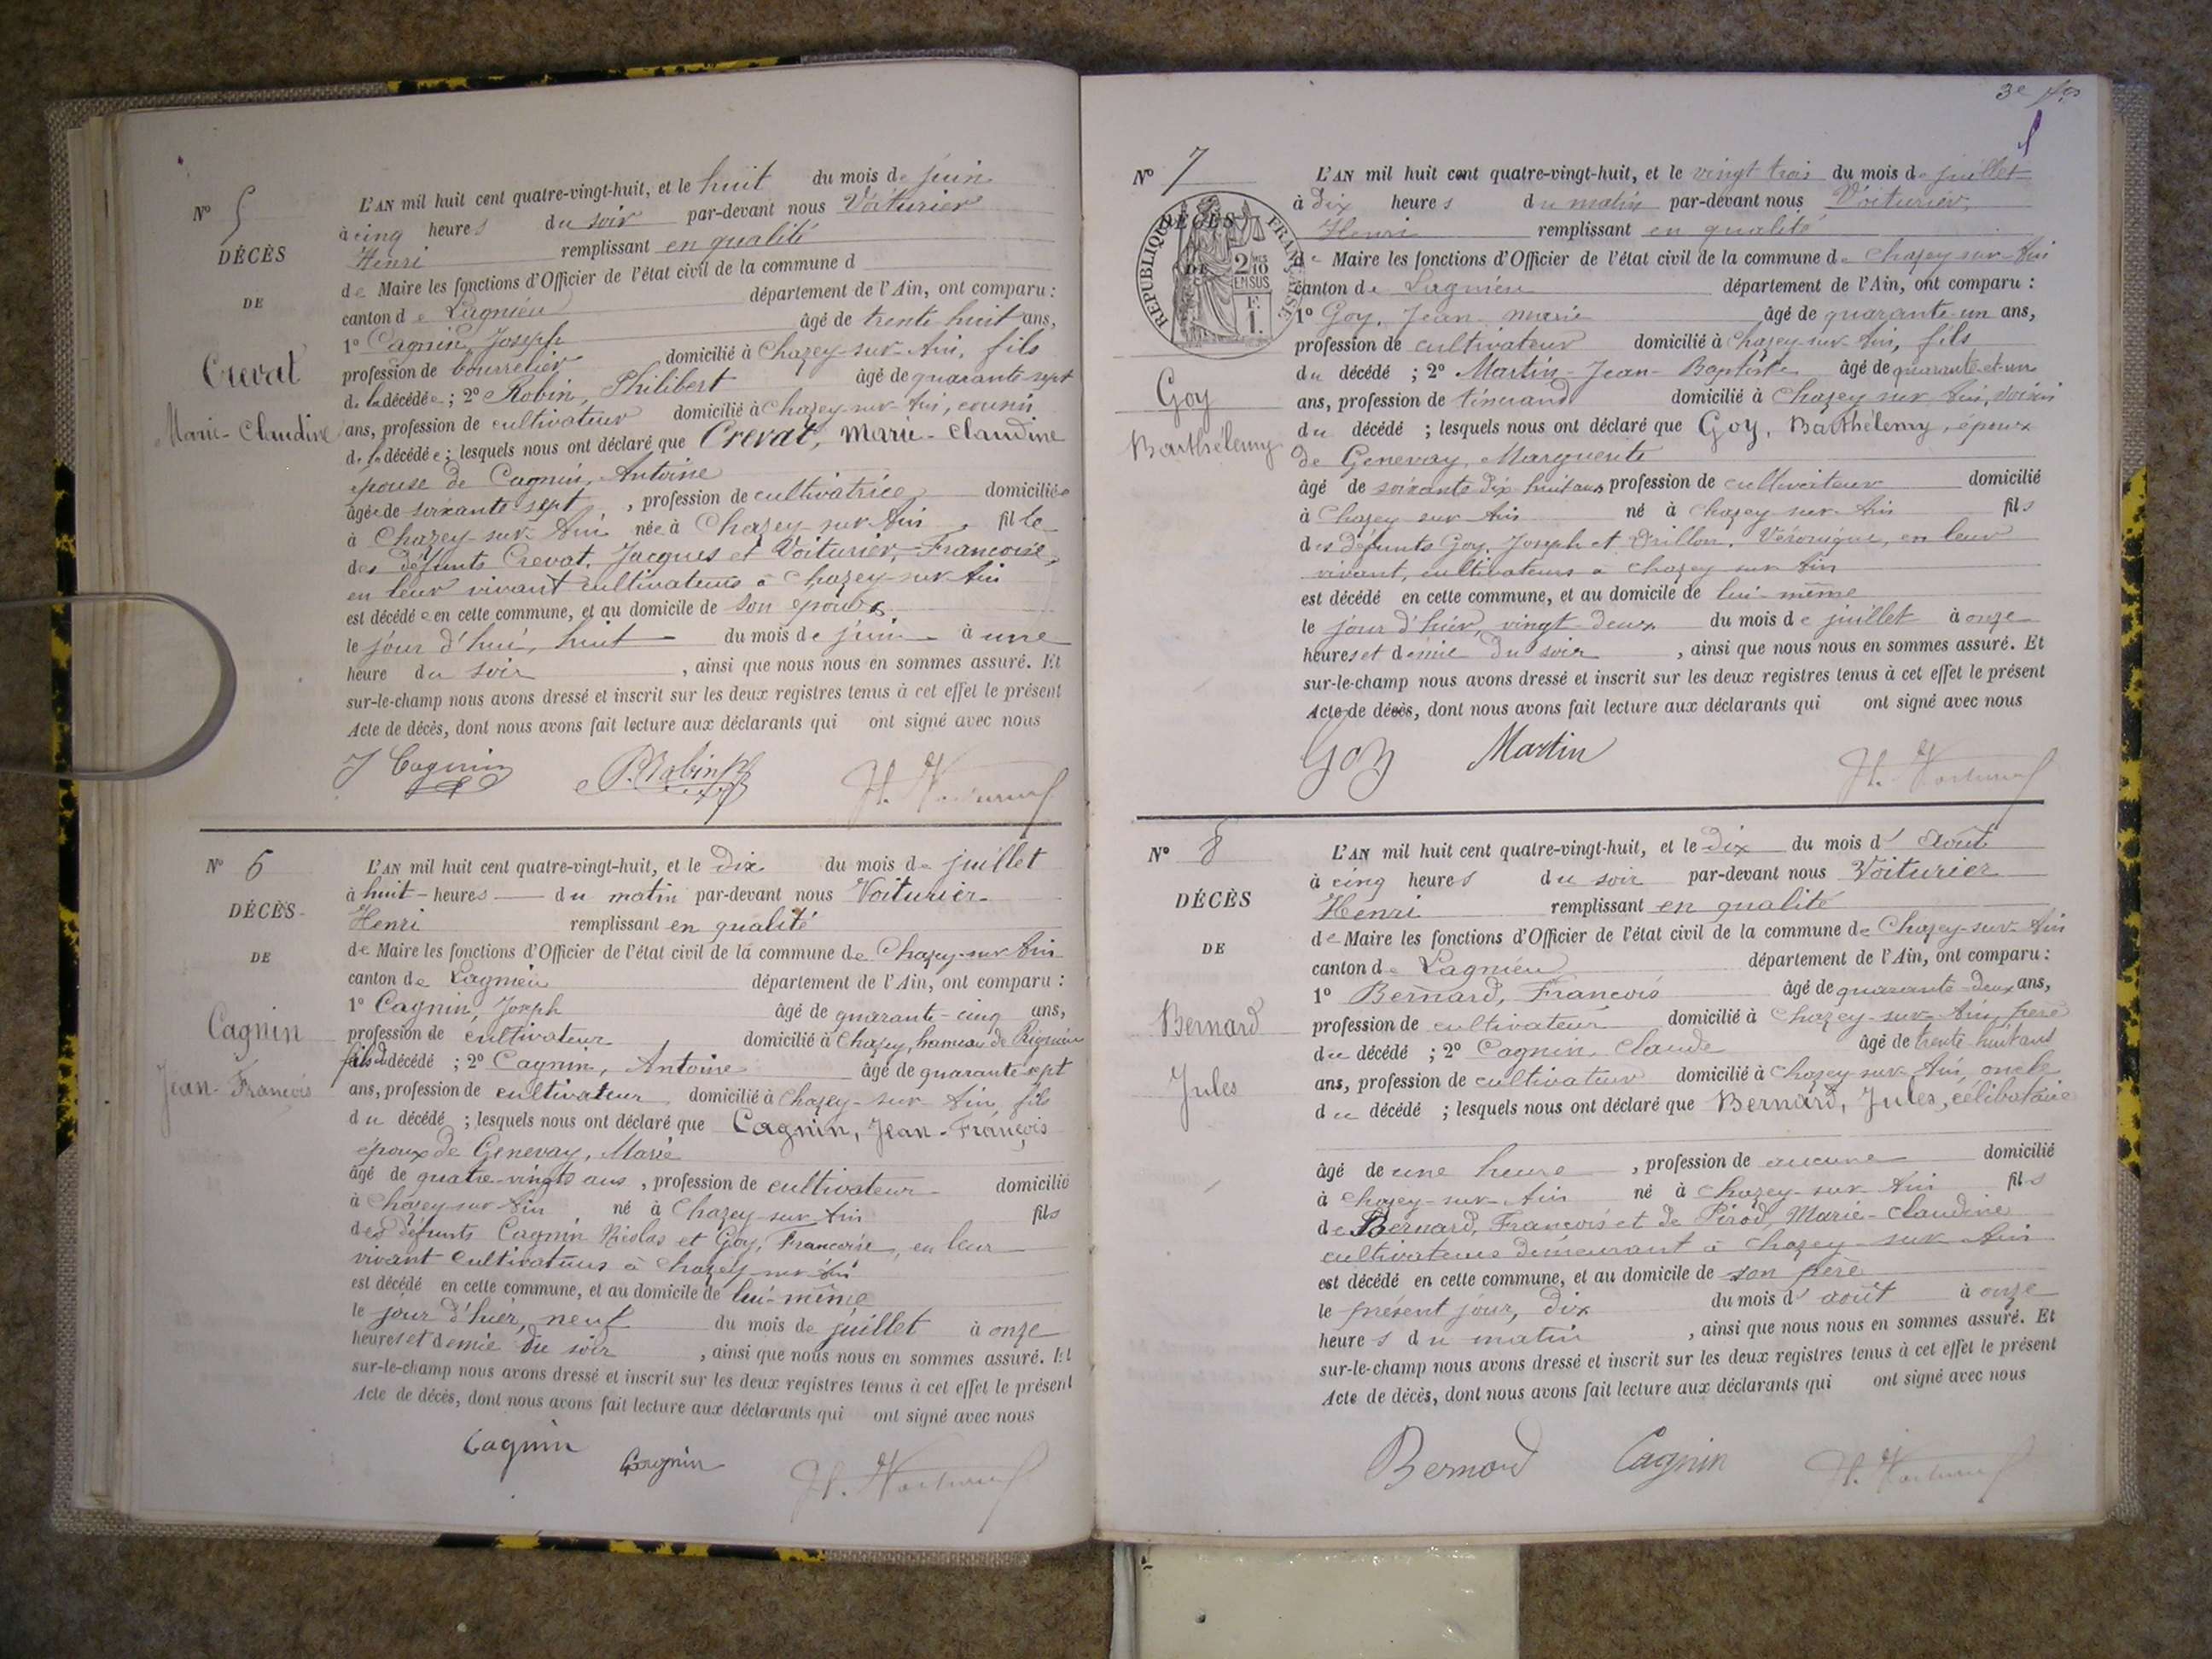 N° 5
DÉCÈS
DE
Crevat
Marie-Claudine
L'AN mil huit cent quatre-vingt-huit, et le huit du mois de juin
à cinq heures du soir par-devant nous Voiturier
Henri remplissant en qualité
de Maire les fonctions d'Officier de l'état civil de la commune d
canton de Lagnieu département de l'Ain, ont comparu :
1° Cagnin, Joseph âgé de trente huit ans,
profession de bourrelier domicilié à Chazey-sur-Ain, fils
de la décédée ; 2° Robin, Philibert âgé de quarante sept
ans, profession de cultivateur domicilié à Chazey-sur-Ain, cousin
de la décédée ; lesquels nous ont déclaré que Crevat, Marie-Claudine
épouse de Cagnin, Antoine
âgée de soixante sept , profession de cultivatrice domiciliée
à Chazey-sur-Ain née à Chazey-sur-Ain , fille
des défunts Crevat, Jacques et Voiturier, Francoise,
en leur vivant cultivateurs à Chazey-sur-Ain
est décédée en cette commune, et au domicile de son époux
le jour d'hui, huit du mois de juin à une
heure du soir , ainsi que nous nous en sommes assuré. Et
sur-le-champ nous avons dressé et inscrit sur les deux registres tenus à cet effet le présent
Acte de décès, dont nous avons fait lecture aux déclarants qui ont signé avec nous
J Cagnin P. Robin H. Voiturier
N° 6
DÉCÈS
DE
Cagnin
Jean-Francois
L'AN mil huit cent quatre-vingt-huit, et le dix du mois de juillet
à huit heures du matin par-devant nous Voiturier
Henri remplissant en qualité
de Maire les fonctions d'Officier de l'état civil de la commune de Chazey-sur-Ain
canton de Lagnieu département de l'Ain, ont comparu :
1° Cagnin, Joseph âgé de quarante-cinq ans,
profession de cultivateur domicilié à Chazey, hameau de Rignieu
fils du décédé ; 2° Cagnin, Antoine âgé de quarante sept
ans, profession de cultivateur domicilié à Chazey-sur-Ain fils
du décédé ; lesquels nous ont déclaré que Cagnin, Jean-François
époux de Genevay, Marie
âgé de quatre-vingts ans , profession de cultivateur domicilié
à Chazey-sur-Ain né à Chazey-sur-Ain fils
des défunts Cagnin Nicolas et Goy, Francoise, en leur
vivant cultivateurs à Chazey-sur-Ain
est décédé en cette commune, et au domicile de lui-même
le jour d'hier, neuf du mois de juillet à onze
heures et demie du soir , ainsi que nous nous en sommes assuré. Et
sur-le-champ nous avons dressé et inscrit sur les deux registres tenus à cet effet le présent
Acte de décès, dont nous avons fait lecture aux déclarants qui ont signé avec nous
Cagnin Cagnin H. Voiturier
3e
N° 7
DÉCÈS
DE
RÉPUBLIQUE FRANÇAISE
2/10 EN SUS
1 F.
Goy
Barthélemy
L'AN mil huit cent quatre-vingt-huit, et le vingt trois du mois de juillet
à dix heures du matin par-devant nous Voiturier,
Henri remplissant en qualité
de Maire les fonctions d'Officier de l'état civil de la commune de Chazey-sur-Ain
canton de Lagnieu département de l'Ain, ont comparu :
1° Goy, Jean marie âgé de quarante un ans,
profession de cultivateur domicilié à Chazey-sur-Ain, fils
du décédé ; 2° Martin-Jean-Baptiste âgé de quarante-et-un
ans, profession de tisserand domicilié à Chazey sur Ain, voisin
du décédé ; lesquels nous ont déclaré que Goy, Barthélemy, époux
de Genevay, Marguerite
âgé de soixante dix huit ans profession de cultivateur domicilié
à Chazey sur Ain né à Chazey sur Ain fils
des défunts Goy, Joseph et Drillon, Véronique, en leur
vivant, cultivateurs à Chazey sur Ain
est décédé en cette commune, et au domicile de lui-même
le jour d'hier, vingt-deux du mois de juillet à onze
heures et demie du soir , ainsi que nous nous en sommes assuré. Et
sur-le-champ nous avons dressé et inscrit sur les deux registres tenus à cet effet le présent
Acte de décès, dont nous avons fait lecture aux déclarants qui ont signé avec nous
Goy Martin H. Voiturier
N° 8
DÉCÈS
DE
Bernard
Jules
L'AN mil huit cent quatre-vingt-huit, et le dix du mois d' Août
à cinq heures du soir par-devant nous Voiturier
Henri remplissant en qualité
de Maire les fonctions d'Officier de l'état civil de la commune de Chazey-sur-Ain
canton de Lagnieu département de l'Ain, ont comparu :
1° Bernard, Francois âgé de quarante-deux ans,
profession de cultivateur domicilié à Chazey-sur-Ain, père
du décédé ; 2° Cagnin, Claude âgé de trente huit ans
ans, profession de cultivateur domicilié à Chazey-sur-Ain, oncle
du décédé ; lesquels nous ont déclaré que Bernard, Jules, célibataire
âgé de une heure , profession de aucune domicilié
à Chazey-sur-Ain né à Chazey-sur-Ain fils
de Bernard, Francois et de Pirod, Marie-Claudine
cultivateurs demeurant à Chazey-sur-Ain
est décédé en cette commune, et au domicile de son père
le présent jour, dix du mois d' août à onze
heures du matin , ainsi que nous nous en sommes assuré. Et
sur-le-champ nous avons dressé et inscrit sur les deux registres tenus à cet effet le présent
Acte de décès, dont nous avons fait lecture aux déclarants qui ont signé avec nous
Bernard Cagnin H. Voiturier